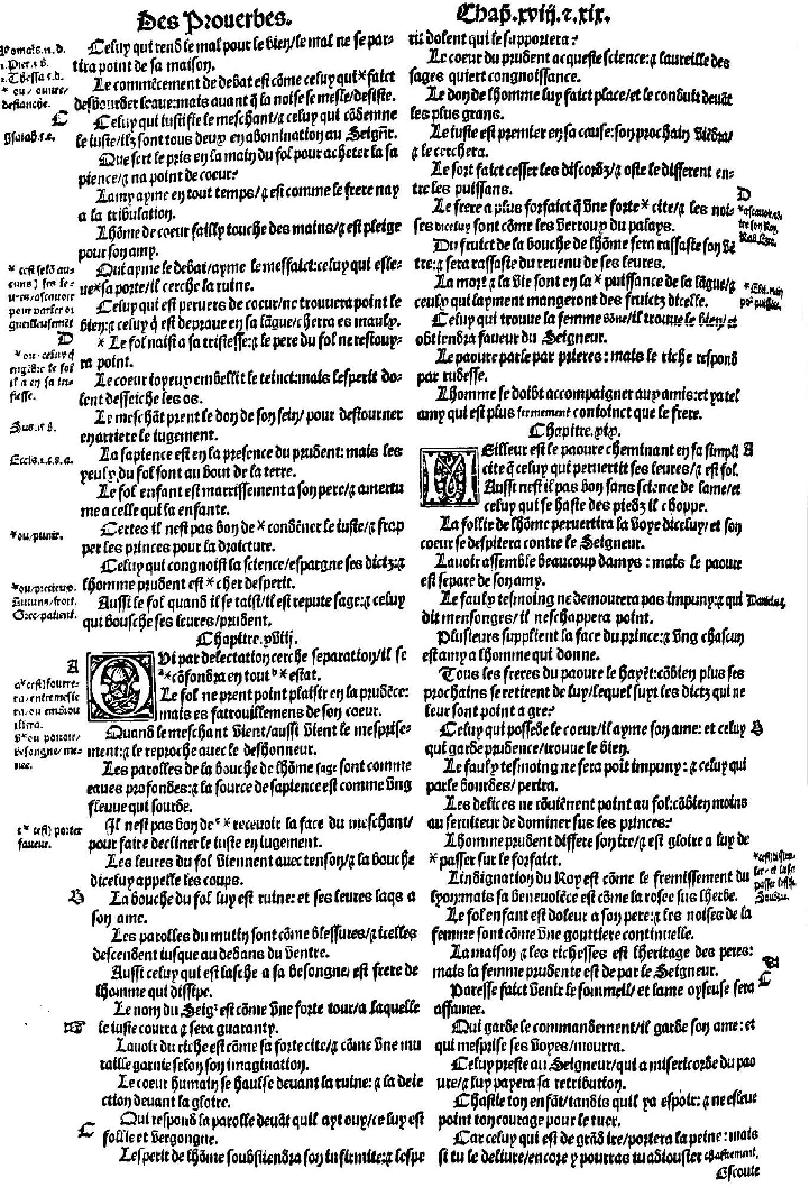 Des Prouerbes.
Chap. xviij. ⁊ xix.
Romains. 12. d.
1. Pier. 3. b.
1. Thessa. 5. d.
* ou / ouure /
destanche.
C
Isaiah. 5. e.
* cest selõ au-
cuns
pour parler or
gueilleusemẽt
D
* ou / celuy q̃
engẽdre le fol
il a en sa tri-
stesse.
Sus. 15. b.
Eccls. 2. c. 8. a.
* ou / punir.
* ou / precieux.
Aucuns / froit.
Grec. patient.
A
B
C
Celuy qui rend le mal pour le bien / le mal ne se par-
tira point de sa maison.
Le commẽcement de debat est cõme celuy qui * faict
desbourder leaue: mais auant q̃ la noise se mesle / desiste.
Celuy qui iustifie le meschant / ⁊ celuy qui cõdemne
le iuste / ilz sont tous deux en abomination au Seignr̃.
Que sert le pris en la main du fol pour acheter la sa
pience / ⁊ na point de coeur?
Lamy ayme en tout temps / ⁊ est comme le frere nay
a la tribulation.
Lhõme de coeur failly touche des mains / ⁊ est pleige
pour son amy.
Qui ayme le debat / ayme le messaict: celuy qui esle-
ue * sa porte / il cerche la ruine.
Celuy qui est peruers de coeur / ne trouuera point le
bien: ⁊ celuy q̃ est depraue en sa lãgue / cherra es maulx.
* Le fol naist a sa tristesse: ⁊ le pere du fol ne resiouy-
ra point.
Le coeur ioyeux embellit le teinct: mais lesperit do-
lent desseiche les os.
Le meschãt prent le don de son sein / pour destourner
en arriere le iugement.
La sapience est en la presence du prudent: mais les
yeulx du fol sont au bout de la terre.
Le fol enfant est marrissement a son pere / ⁊ amertu
me a celle qui la enfante.
Certes il nest pas bon de * condẽner le iuste / ⁊ frap
per les princes pour la droicture.
Celuy qui congnoist la science / espargne ses dictz: ⁊
lhomme prudent est * cher desperit.
Aussi le fol quand il se taist / il est repute sage: ⁊ celuy
qui bousche ses leures / prudent.
Chapitre. xviij.
QVi par delectation cerche separation / il se
** cõfondra en tout * estat.
Le fol ne prent point plaisir en la prudẽce:
mais es fatrouillemens de son coeur.
Quand le meschant vient / aussi vient le mesprise-
ment: ⁊ le reproche auec le deshonneur.
Les parolles de la bouche de lhõme sage sont comme
eaues profondes: ⁊ la source de sapience est comme vng
fleuue qui sourde.
Il nest pas bon de * receuoir la face du meschant /
pour faire decliner le iuste en iugement.
Les leures du fol viennent auec tenson / ⁊ la bouche
dicelluy appelle les coups.
La bouche du fol luy est ruine: et ses leures laqs a
son ame.
Les parolles du mutin sont cõme blessures / ⁊ icelles
descendent iusque au dedans du ventre.
Aussi celuy qui est lasche a sa besongne / est frere de
lhomme qui dissipe.
Le nom du Seigr̃ est cõme vne forte tour / a laquelle
le iuste courra ⁊ sera guaranty.
Lauoir du riche est cõme sa forte cite / ⁊ cõme vne mu
raille garnie selon son imagination.
Le coeur humain se haulse deuant la ruine: ⁊ la deie
ction deuant la gloire.
Qui respond la parolle deuãt quil ayt ouy / ce luy est
follie et vergongne.
Lesperit de lhõme soubstiendra son infirmite: ⁊ lespe
rit dolent qui le supportera?
Le coeur du prudent acqueste science: ⁊ laureille des
sages quiert congnoissance.
Le don de lhomme luy faict place / et le conduit deuãt
les plus grans.
Le iuste est premier en sa cause: son prochain viẽdra /
⁊ le cerchera.
Le sort faict cesser les discordz / ⁊ oste le different en-
tre les puissans.
Le frere a plus forfaict q̃ vne forte * cite / ⁊ les noi-
ses dicelluy sont cõme les verroux du palays.
Du fruict de la bouche de lhõme sera rassasie son vẽ
tre: ⁊ sera rassasie du reuenu de ses leures.
La mort ⁊ la vie sont en la * puissance de la lãgue / ⁊
ceulx qui layment mangeront des fruictz dicelle.
Celuy qui trouue la femme bõne / il trouue le bien / et
obtiendra faueur du Seigneur.
Le paoure parle par prieres: mais le riche respond
par rudesse.
Lhomme se doibt accompaigner aux amis: et ya tel
amy qui est plus fermement conioinct que le frere.
Chapitre. xix.
MEilleur est le paoure cheminant en sa simpli
cite q̃ celuy qui peruertit ses leures / ⁊ est fol.
Aussi nest il pas bon sans science de lame / et
celuy qui se haste des piedz il choppe.
La follie de lhõme peruertira la voye dicelluy: et son
coeur se despitera contre le Seigneur.
Lauoir assemble beaucoup damys: mais le paoure
est separe de son amy.
Le faulx tesmoing ne demourera pas impuny: ⁊ qui
dit mensonges / il neschappera point.
Plusieurs supplient la face du prince: ⁊ vng chascun
est amy a lhomme qui donne.
Tous les freres du paoure le hayẽt: cõbien plus ses
prochains se retirent de luy / lequel suyt les dictz qui ne
leur sont point a gre?
Celuy qui possede le coeur / il ayme son ame: et celuy
qui garde prudence / trouue le bien.
Le faulx tesmoing ne sera poĩt impuny: ⁊ celuy qui
parle bourdes / perira.
Les delices ne cõuiẽnent point au fol: cõbien moins
au seruiteur de dominer sus les princes?
Lhomme prudent differe son ire / ⁊ est gloire a luy de
* passer sur le forfaict.
Lindignation du Roy est cõme le fremissement du
lyon: mais sa beneuolẽce est cõme la rosee sus lherbe.
Le fol enfant est doleur a son pere: ⁊ les noises de la
femme sont cõme vne gouttiere continuelle.
La maison ⁊ les richesses est lheritage des peres:
mais la femme prudente est de par le Seigneur.
Paresse faict venir le sommeil / et lame oyseuse sera
affamee.
Qui garde le commandement / il garde son ame: et
qui mesprise ses voyes / mourra.
Celuy preste au Seigneur / qui a misericorde du pao
ure / ⁊ luy payera sa retribution.
Chastie ton enfãt / tandis quil ya espoir: ⁊ ne eslieue
point ton courage pour le tuer.
Car celuy qui est de grãd ire / portera la peine: mais
si tu le deliure / encore y pourras tu adiouster chastiement.
Escoute
D
A
B
C